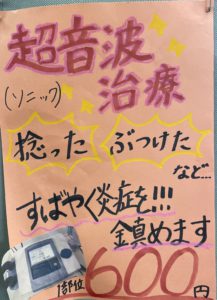 超音波
(ソニック)
治療
捻った ぶつけた
など…
すばやく炎症を!!!
鎮めます
1部位600円